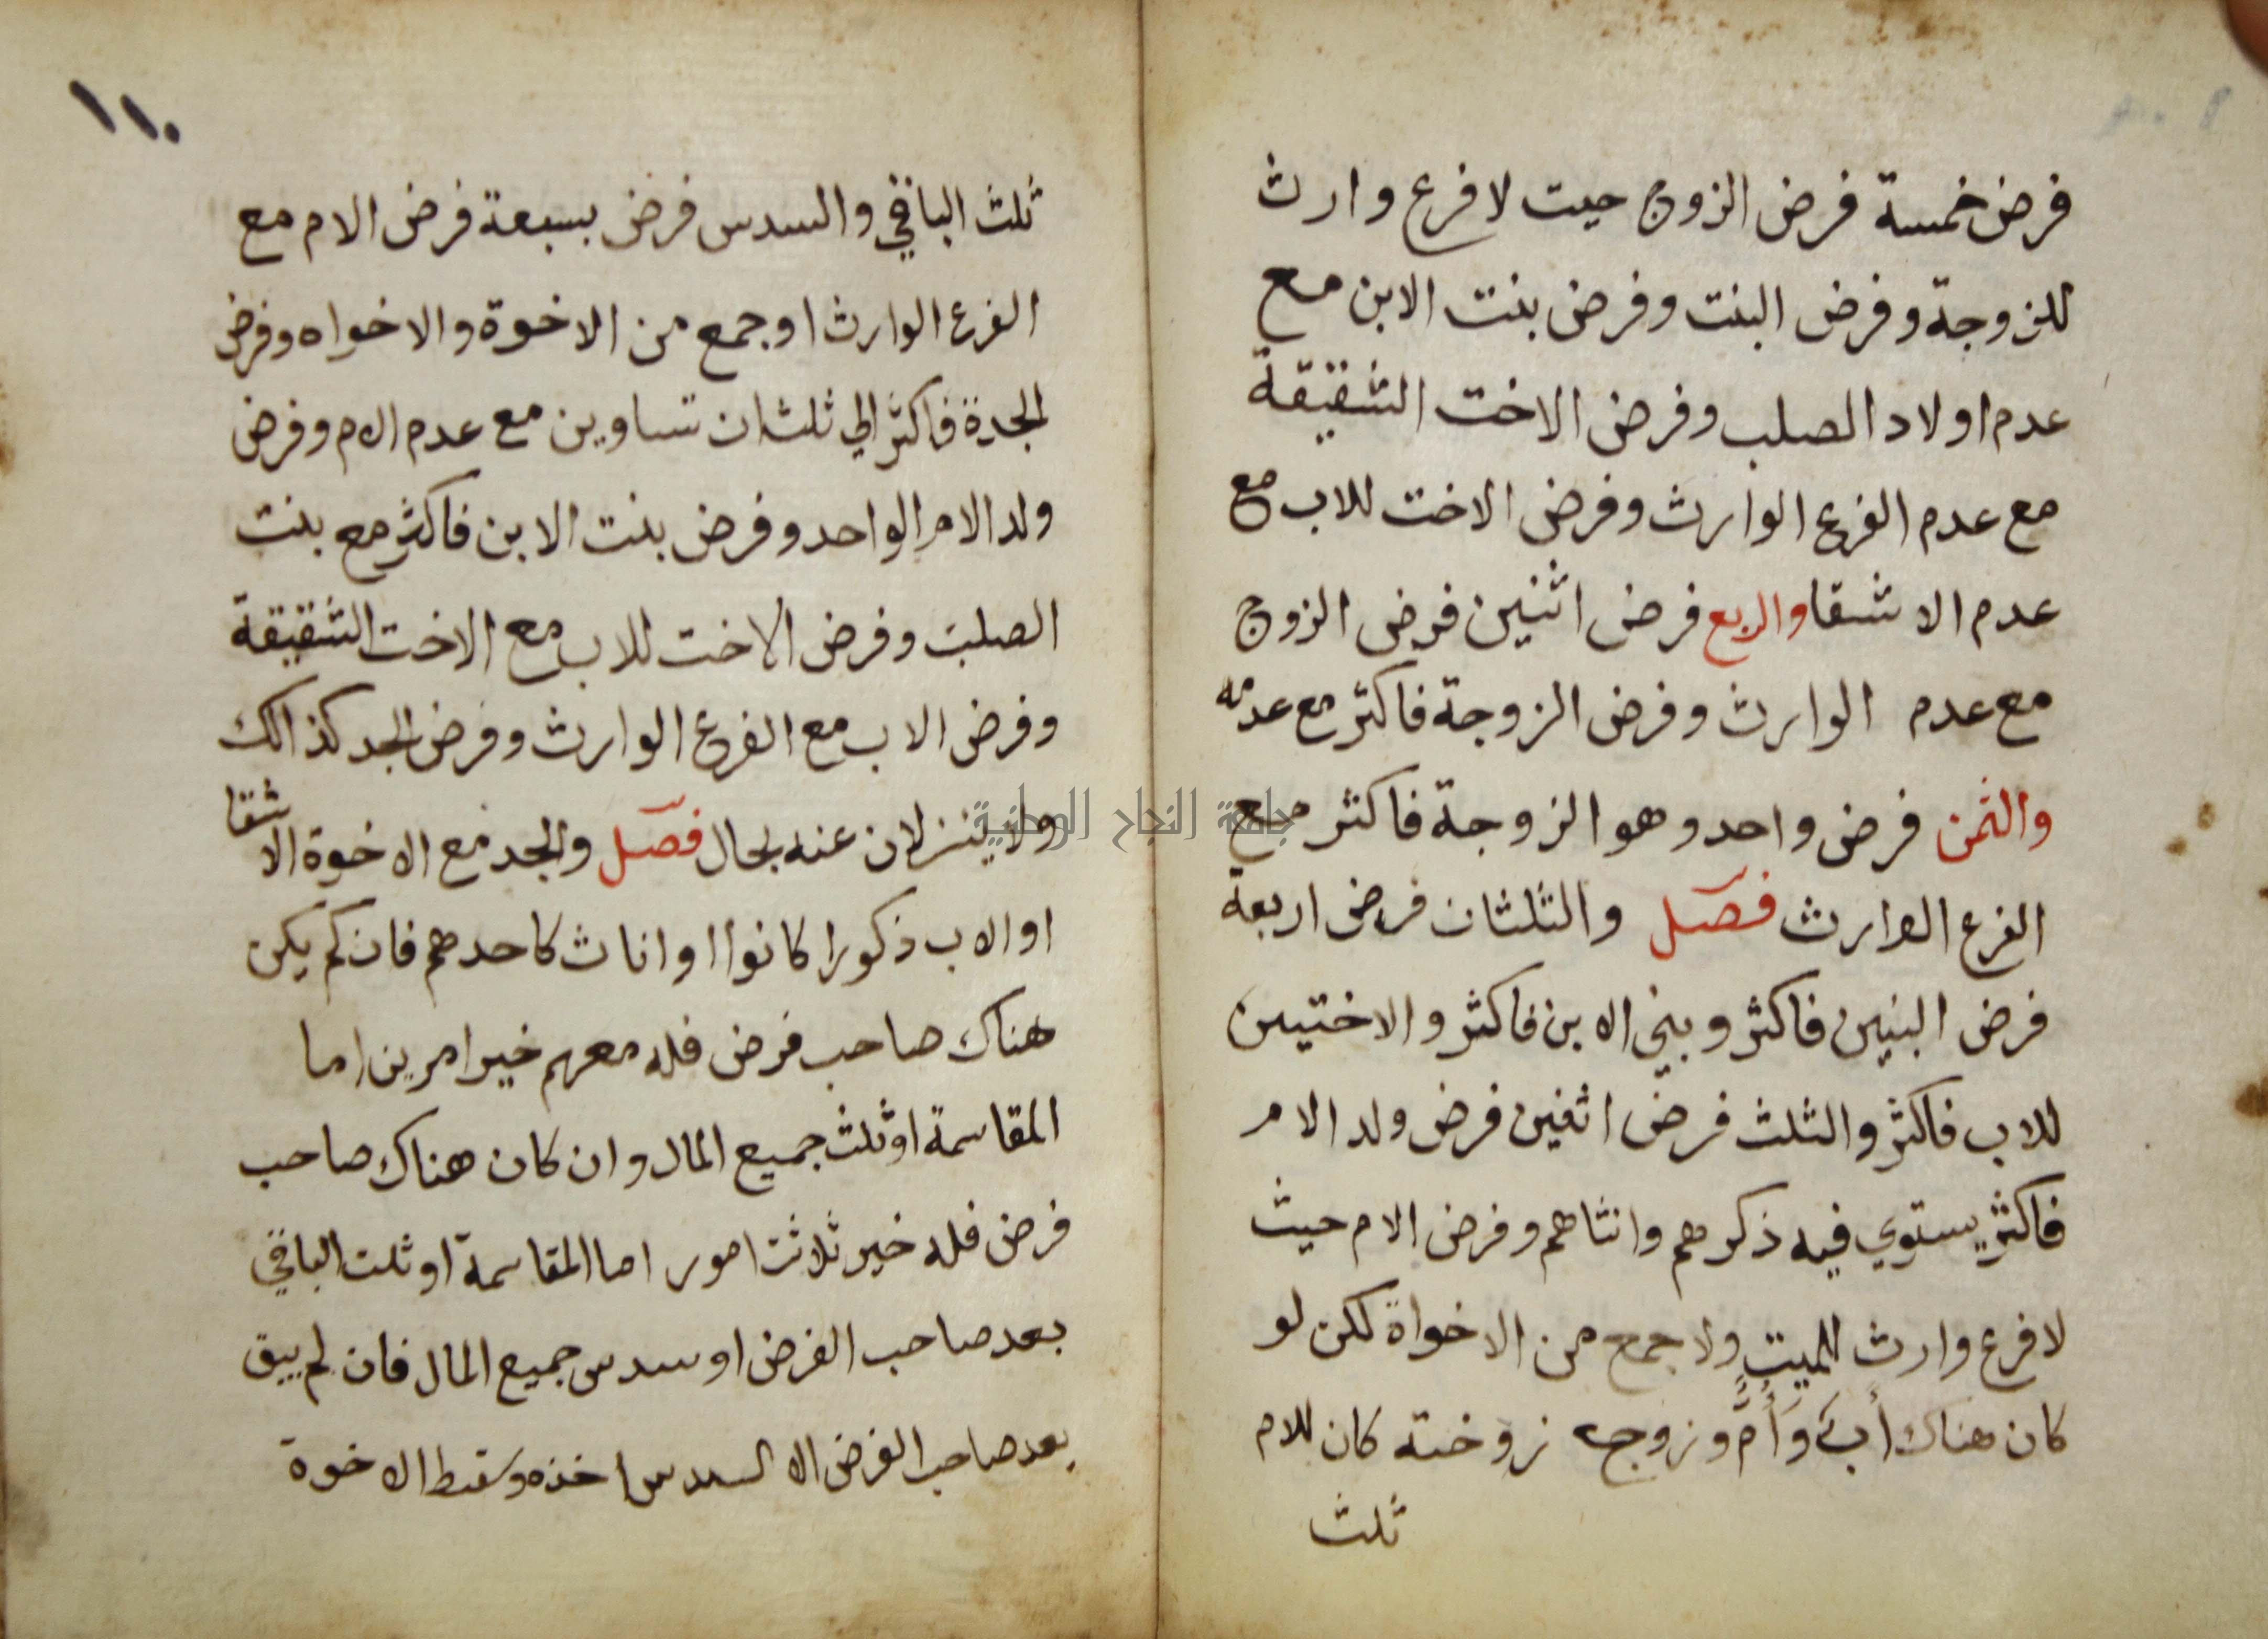 فرض خمسة فرض الزوج حيت لا فرع وارث
للزوجة وفرض البنت وفرض بنت الابن مع
عدم اولاد الصلب وفرض الاخت الشقيقة
مع عدم الفرع الوارث وفرض الاخت للاب مع
عدم الاشقا والربع فرض اثنين فرض الزوج
مع عدم الوارث وفرض الزوجة فاكثر مع عدمه
والثمن فرض واحد وهو الزوجة فاكثر مع
الفرع الوارث فصل والثلثان فرض اربعة
فرض البنين فاكثر وبني الابن فاكثر والاختين
للاب فاكثر والثلث فرض اثنين فرض ولد الام
فاكثر يستوي فيه ذكرهم وانثاهم وفرض الام حيث
لا فرع وارث للميت ولا جمع من الاخواة لكن لو
كان هناك أب وَأُمٌّ وزوج زوخته كان للام
ثلث
١١٠
ثلث الباقي والسدس فرض بسبعة فرض الام مع
الفرع الوارث او جمع من الاخوة والاخواه وفرض
الجدة فاكثر الي ثلثان تساوين مع عدم الام وفرض
ولد الام الواحد وفرض بنت الابن فاكثر مع بنت
الصلب وفرض الاخت للاب مع الاخت الشقيقة
وفرض الاب مع الفرع الوارث وفرض الجد كذالك
ولا ينزلان عنه بحال فصل والجد مع الاخوة الاشقا
او الاب ذكورا كانوا اواناث كاحدهم فان لم يكن
هناك صاحب فرض فله معهم خير امرين اما
المقاسمة او ثلث جميع المال وان كان هناك صاحب
فرض فله خير ثلاثت امور اما المقاسمة او ثلت الباقي
بعد صاحب الفرض او سدس جميع المال فان لم يبق
بعد صاحب الفرض الا السدس اخذه وسقط الاخوة
جامعة النجاح الوطنية